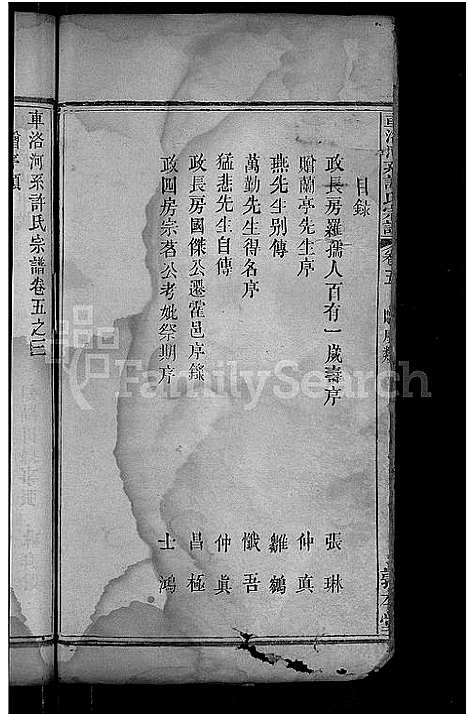 目錄
政長房羅孺人百有一歲壽序 張琳
贈蘭亭先生序 仲真
燕先生別傳 雛鶴
萬勤先生得名序 懺吾
猛悲先生自傳 仲眞
政長房國傑公遷霍邑序錄 昌極
政四房宗茗公考妣祭期序 士鴻
車洛河系許氏宗譜卷五之三
FamilySearch